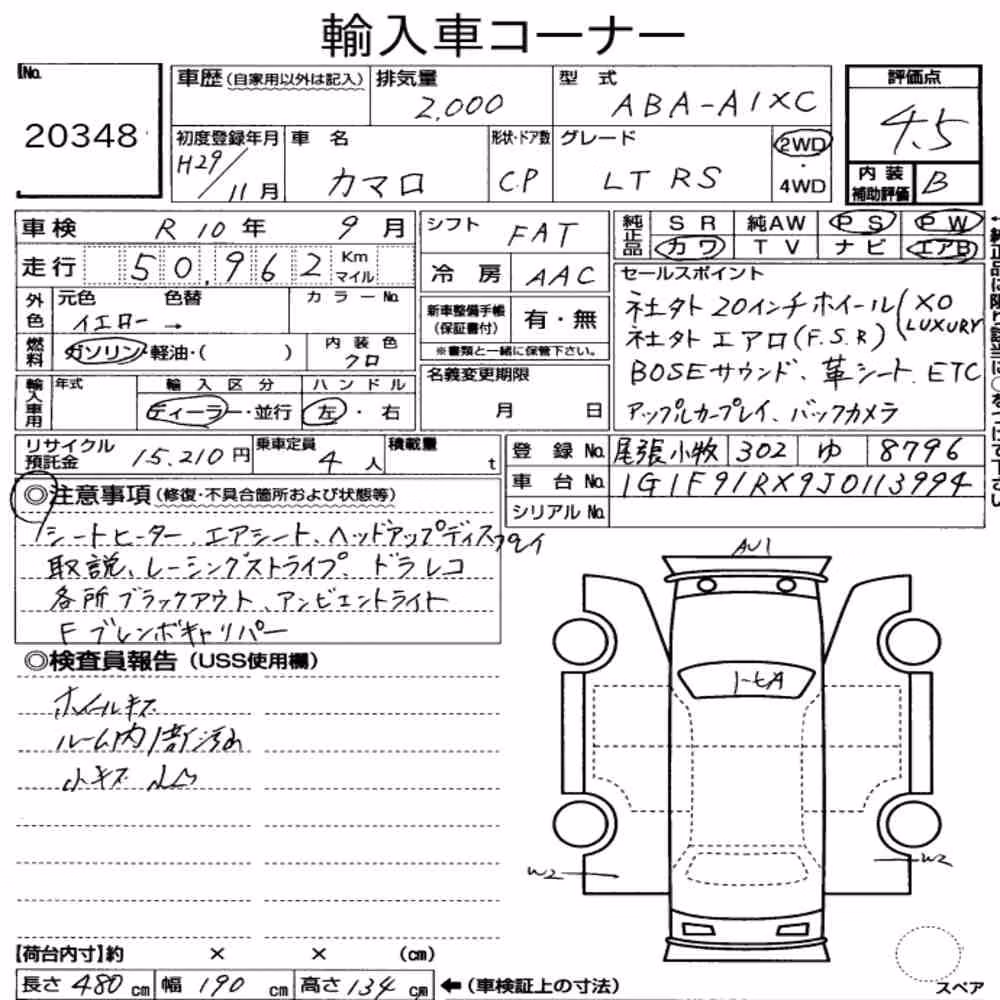 輸入車コーナー
No. 20348
車歴(自家用以外は記入) 排気量 2,000 型式 ABA-A1XC 評価点 4.5
初度登録年月 H29/11月 車名 カマロ 形状・ドア数 C.P グレード LT RS 2WD・4WD 内装補助評価 B
車検 R 10年 9月
走行 50,962 Km マイル
外色 元色 イエロー → 色替 カラーNo.
燃料 ガソリン・軽油・( ) 内装色 クロ
輸入車用 年式 輸入区分 ディーラー・並行 ハンドル 左・右
シフト FAT
冷房 AAC
新車整備手帳(保証書付) 有・無
※書類と一緒に保管下さい。
名義変更期限 月 日
純正品 SR 純AW PS PW
カワ TV ナビ エアB
セールスポイント
社外 20インチホイール (XO
社外 エアロ(F.S.R) LUXURY)
BOSEサウンド、革シート、ETC
アップルカープレイ、バックカメラ
リサイクル預託金 15.210円 乗車定員 4人 積載量 t
登録No. 尾張小牧 302 ゆ 8796
車台No. 1G1F91RX9J0113994
シリアルNo.
◎注意事項(修復・不具合箇所および状態等)
シートヒーター、エアシート、ヘッドアップディスプレイ
取説、レーシングストライプ、ドラレコ
各所ブラックアウト、アンビエントライト
F ブレンボキャリパー
◎検査員報告(USS使用欄)
ホイールキズ
ルーム内 汚れ
小キズ
AU1
W2
W2
スペア
【荷台内寸】約 × × (cm)
長さ 480 cm 幅 190 cm 高さ 134 cm ←(車検証上の寸法)